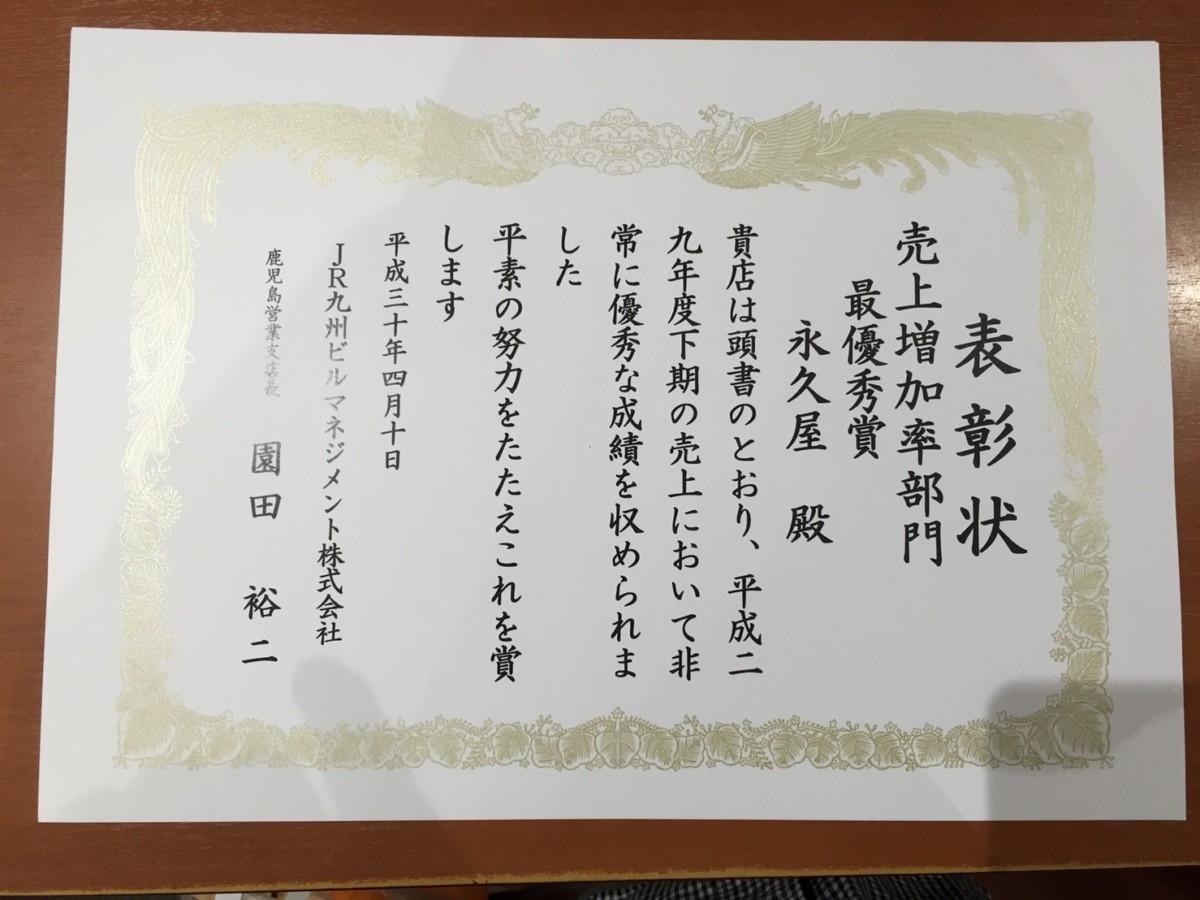 表彰状
売上増加率部門
最優秀賞
永久屋 殿
貴店は頭書のとおり、平成二
九年度下期の売上において非
常に優秀な成績を収められま
した
平素の努力をたたえこれを賞
します
平成三十年四月十日
JR九州ビルマネジメント株式会社
鹿児島営業支店長 園田 裕二